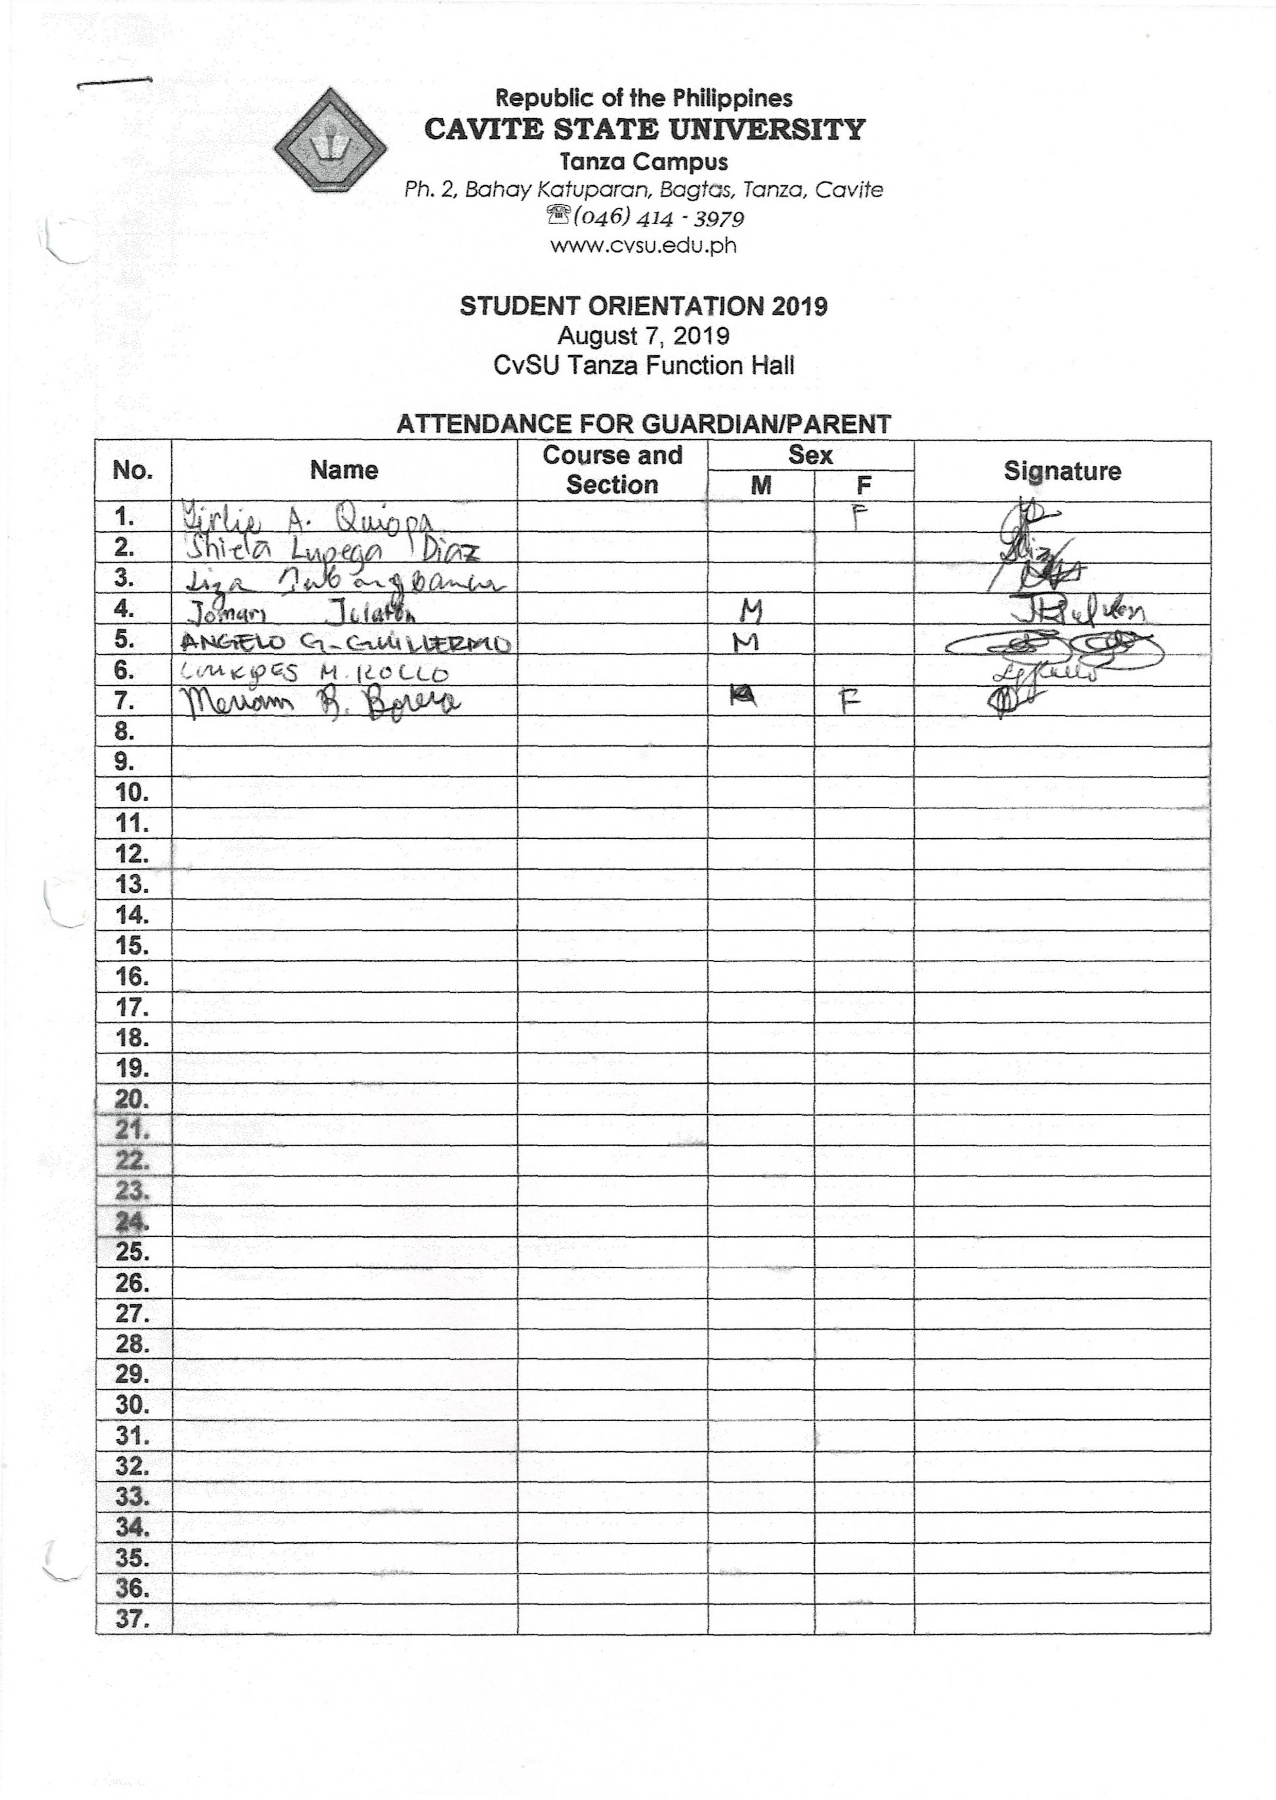 Republic of the Philippines
CAVITE STATE UNIVERSITY
Tanza Campus
Ph. 2, Bahay Katuparan, Bagtas, Tanza, Cavite
☏(046) 414 - 3979
www.cvsu.edu.ph
STUDENT ORIENTATION 2019
August 7, 2019
CvSU Tanza Function Hall
ATTENDANCE FOR GUARDIAN/PARENT
No. Name Course and Section Sex M F Signature
1. Girlie A. Quiopa F
2. Shiela Lupega Diaz
3. Liza
4. Jomari Julaton M
5. ANGELO G. GUILLERMO M
6. M. ROLLO
7. Merriam B. F
8.
9.
10.
11.
12.
13.
14.
15.
16.
17.
18.
19.
20.
21.
22.
23.
24.
25.
26.
27.
28.
29.
30.
31.
32.
33.
34.
35.
36.
37.